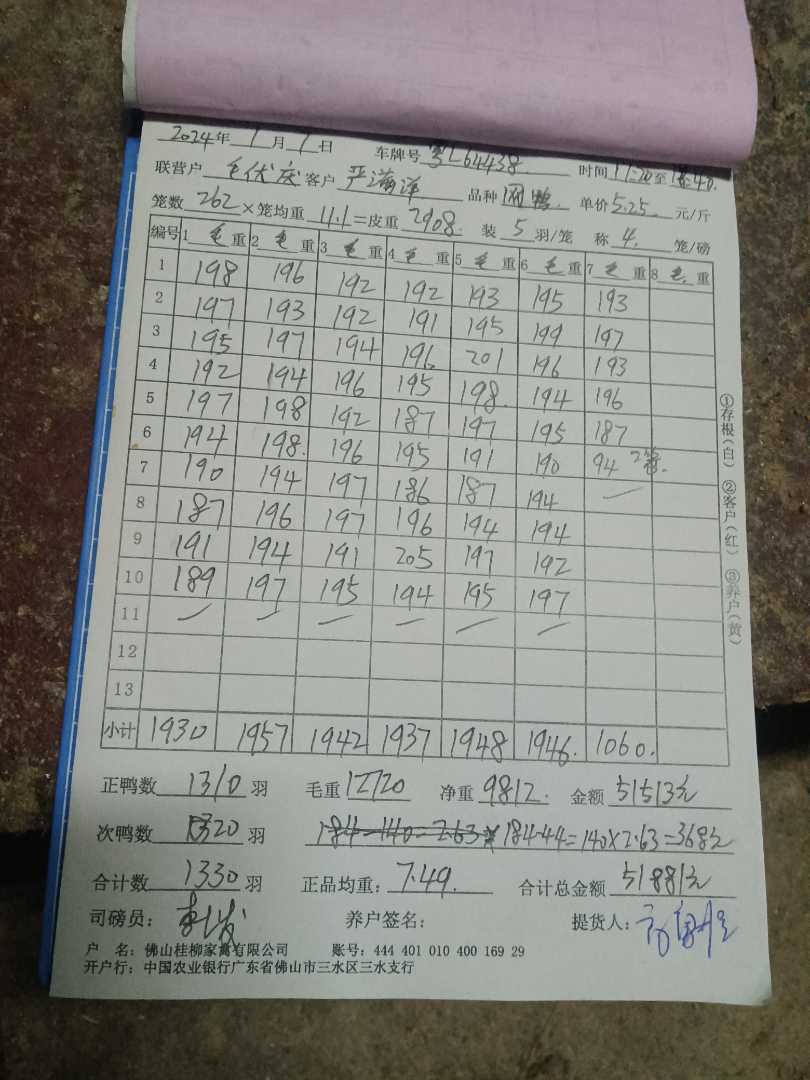 2024年 7月 7日 车牌号 粤L64438. 时间 17:20至18:40.
联营户 毛伏庆 客户 严满洋 品种 网鸭. 单价5.25. 元/斤
笼数 262 ×笼均重 11.1 =皮重 2908. 装 5 羽/笼 称 4. 笼/磅
编号 1 毛重 2 毛重 3 毛重 4 毛重 5 毛重 6 毛重 7 毛重 8 毛重
1 198 196 192 192 193 195 193
2 197 193 192 191 195 199 197
3 195 197 194 196 201 196 193
4 192 194 196 195 198. 194 196
5 197 198 192 187 197 195 187
6 194 198. 196 195 191 190 94 2笼.
7 190 194 197 186 187 194 —
8 187 196 197 196 194 194
9 191 194 191 205 197 192
10 189 197 195 194 195 197
11 — — — — — —
12
13
小计 1930 1957 1942 1937 1948 1946. 1060.
正鸭数 1310 羽 毛重 12720 净重 9812. 金额 51513元
次鸭数 20 羽 184-44=140×2.63=368元
合计数 1330 羽 正品均重: 7.49. 合计总金额 51881元
司磅员: 养户签名: 提货人:
户 名: 佛山桂柳家禽有限公司 账号: 444 401 010 400 169 29
开户行: 中国农业银行广东省佛山市三水区三水支行
①存根(白) ②客户(红) ③养户(黄)